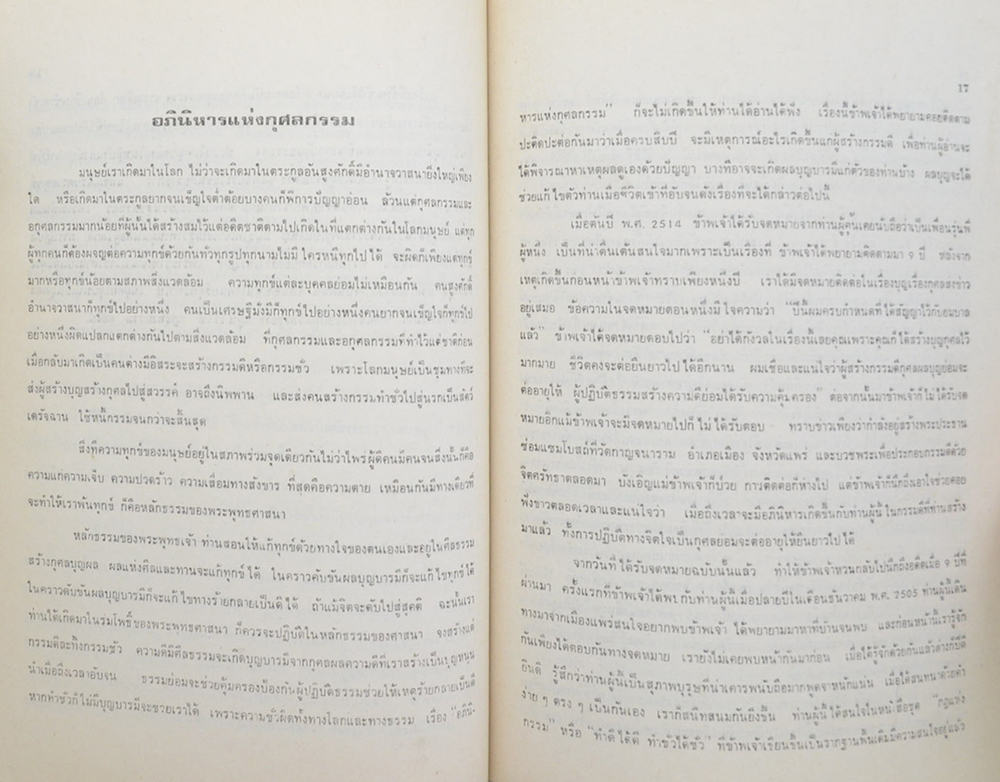 อภินิหารแห่งกุศลกรรม
มนุษย์เราเกิดมาในโลก ไม่ว่าจะเกิดมาในตระกูลอันสูงศักดิ์มีอำนาจวาสนายิ่งใหญ่เพียง
ใด หรือเกิดมาในตระกูลยากจนเข็ญใจต่ำต้อยบางคนก็พิการปัญญาอ่อน ล้วนแต่กุศลกรรมและ
อกุศลกรรมมากน้อยที่ผู้นั้นได้สร้างสมไว้แต่อดีตชาติตามไปเกิดในที่แตกต่างกันในโลกมนุษย์ แต่ทุก
ผู้ทุกคนก็ต้องผจญต่อความทุกข์ด้วยกันทั่วทุกรูปทุกนามไม่มี ใครหนีทุกไปได้ จะผิดก็เพียงแต่ทุกข์
มากหรือทุกข์น้อยตามสภาพสิ่งแวดล้อม ความทุกข์แต่ละบุคคลย่อมไม่เหมือนกัน คนสูงศักดิ์
อำนาจวาสนาก็ทุกข์ไปอย่างหนึ่ง คนเป็นเศรษฐีมั่งมีก็ทุกข์ไปอย่างหนึ่งคนยากจนเข็ญใจก็ทุกข์ไป
อย่างหนึ่งผิดแปลกแตกต่างกันไปตามสิ่งแวดล้อม ที่กุศลกรรมและอกุศลกรรมที่ทำไว้แต่ชาติก่อน
เมื่อกลับมาเกิดเป็นคนต่างมีอิสระจะสร้างกรรมดีหรือกรรมชั่ว เพราะโลกมนุษย์เป็นชุมทางที่จะ
ส่งผู้สร้างบุญสร้างกุศลไปสู่สวรรค์ อาจถึงนิพพาน และส่งคนสร้างกรรมทำชั่วไปสู่นรกเป็นสัตว์
เดรัจฉาน ใช้หนี้กรรมจนกว่าจะสิ้นสุด
สิ่งที่ความทุกข์ของมนุษย์อยู่ในสภาพร่วมจุดเดียวกันไม่ว่าไพร่ผู้ดีคนมีคนจนสิ่งนั้นก็คือ
ความแก่ความเจ็บ ความปวดร้าว ความเสื่อมทางสังขาร ที่สุดคือความตาย เหมือนกันมีทางเดียวที่
จะทำให้เราพ้นทุกข์ ก็คือหลักธรรมของพระพุทธศาสนา
หลักธรรมของพระพุทธเจ้า ท่านสอนให้แก้ทุกข์ด้วยทางใจของตนเองและอยู่ในศีลธรรม
สร้างกุศลบุญผล ผลแห่งศีลและทานจะแก้ทุกข์ได้ ในคราวคับขันผลบุญบารมีก็จะแก้ไขทุกข์ได้
ในคราวคับขันผลบุญบารมีก็จะแก้ไขทางร้ายกลายเป็นดีได้ ถ้าแม้จิตจะดับไปสู่สุคติ ฉะนั้นเรา
ท่านได้เกิดมาในร่มโพธิ์ของพระพุทธศาสนา ก็ควรจะปฏิบัติในหลักธรรมของศาสนา จงสร้างแต่
กรรมดีละทิ้งกรรมชั่ว ความดีมีศีลธรรมจะเกิดบุญบารมีจากกุศลผลความดีที่เราสร้างเป็นบุญหนุน
นำเมื่อถึงเวลาอับจน ธรรมย่อมจะช่วยคุ้มครองป้องกันผู้ปฏิบัติธรรมช่วยให้เหตุร้ายกลายเป็นดี
หากทำชั่วก็ไม่มีบุญบารมีจะช่วยเราได้ เพราะความชั่วผิดทั้งทางโลกและทางธรรม เรื่อง "อภินิ-
17
หารแห่งกุศลกรรม" ก็จะไม่เกิดขึ้นให้ท่านได้อ่านได้ฟัง เรื่องนี้ข้าพเจ้าได้พยายามคอยติดตาม
ปะติดปะต่อกันมาว่าเมื่อครบสิบปี จะมีเหตุการณ์อะไรเกิดขึ้นแก่ผู้สร้างกรรมดี เพื่อท่านผู้อ่านจะ
ได้พิจารณาหาเหตุผลดูเองด้วยปัญญา บางทีอาจจะเกิดผลบุญบารมีแก่ตัวของท่านบ้าง ผลบุญจะได้
ช่วยแก้ไขตัวท่านเมื่อชีวิตเข้าที่อับจนดังเรื่องที่จะได้กล่าวต่อไปนี้
เมื่อต้นปี พ.ศ. 2514 ข้าพเจ้าได้รับจดหมายจากท่านผู้คุ้นเคยนับถือว่าเป็นเพื่อนรุ่นพี่
ผู้หนึ่ง เป็นที่น่าตื่นเต้นสนใจมากเพราะเป็นเรื่องที่ ข้าพเจ้าได้พยายามติดตามมา ๑ ปี หลังจาก
เหตุเกิดขึ้นก่อนหน้าข้าพเจ้าทราบเพียงหนึ่งปี เราได้มีจดหมายติดต่อในเรื่องบุญเรื่องกุศลส่งข่าว
อยู่เสมอ ข้อความในจดหมายตอนหนึ่งมีใจความว่า "ปีนี้ผมครบกำหนดที่ได้สัญญาไว้กับยมบาล
แล้ว" ข้าพเจ้าได้จดหมายตอบไปว่า "อย่าได้กังวลในเรื่องนี้เลยคุณเพราะคุณก็ได้สร้างบุญกุศลไว้
มากมาย ชีวิตคงจะต่อยืนยาวไปได้อีกนาน ผมเชื่อและแน่ใจว่าผู้สร้างกรรมดีกุศลผลบุญย่อมจะ
ต่ออายุให้ ผู้ปฏิบัติธรรมสร้างความดีย่อมได้รับความคุ้มครอง" ต่อจากนั้นมาข้าพเจ้าก็ไม่ได้รับจด
หมายอีกแม้ข้าพเจ้าจะมีจดหมายไปก็ไม่ได้รับตอบ ทราบข่าวเพียงว่ากำลังอยู่สร้างพระประธาน
ซ่อมแซมโบสถ์ที่วัดกาญจนาราม อำเภอเมือง จังหวัดแพร่ และบวชพระเพื่อประกอบกรรมดีด้วย
จิตศรัทธาตลอดมา บังเอิญแม่ข้าพเจ้าก็ป่วย การติดต่อก็ห่างไป แต่ข้าพเจ้าก็นึกถึงเอาใจช่วยคอย
ฟังข่าวตลอดเวลาและแน่ใจว่า เมื่อถึงเวลาจะมีอภินิหารเกิดขึ้นกับท่านผู้นี้ ในกรรมดีที่ท่านสร้าง
มาแล้ว ทั้งการปฏิบัติทางจิตใจเป็นกุศลย่อมจะต่ออายุให้ยืนยาวไปได้
จากวันที่ได้รับจดหมายฉบับนั้นแล้ว ทำให้ข้าพเจ้าหวนกลับไปนึกถึงอดีตเมื่อ ๑ ปีที่
ผ่านมา ครั้งแรกที่ข้าพเจ้าได้พบกับท่านผู้นี้เมื่อปลายปีในเดือนธันวาคม พ.ศ. 2505 ท่านผู้นี้เดิน
ทางมาจากเมืองแพร่สนใจอยากพบข้าพเจ้า ได้พยายามมาหาที่บ้านจนพบ และก่อนหน้านี้เรารู้จัก
กันเพียงได้ตอบกันทางจดหมาย เรายังไม่เคยพบหน้ากันมาก่อน เมื่อได้รู้จักด้วยกันแล้วต่างก็ปีติ
ยินดี รู้สึกว่าท่านผู้นี้เป็นสุภาพบุรุษที่น่าเคารพนับถือมากพูดจาหนักแน่น เมื่อได้สนทนาด้วยคำ
ง่าย ๆ ตรง ๆ เป็นกันเอง เราก็สนิทสนมกันยิ่งขึ้น ท่านผู้นี้ได้สนใจในหนังสือชุด "กฎแห่ง
กรรม" หรือ "ทำดีได้ดี ทำชั่วได้ชั่ว" ที่ข้าพเจ้าเขียนขึ้นเป็นรากฐานพื้นเดิมมีความสนใจอยู่แล้ว